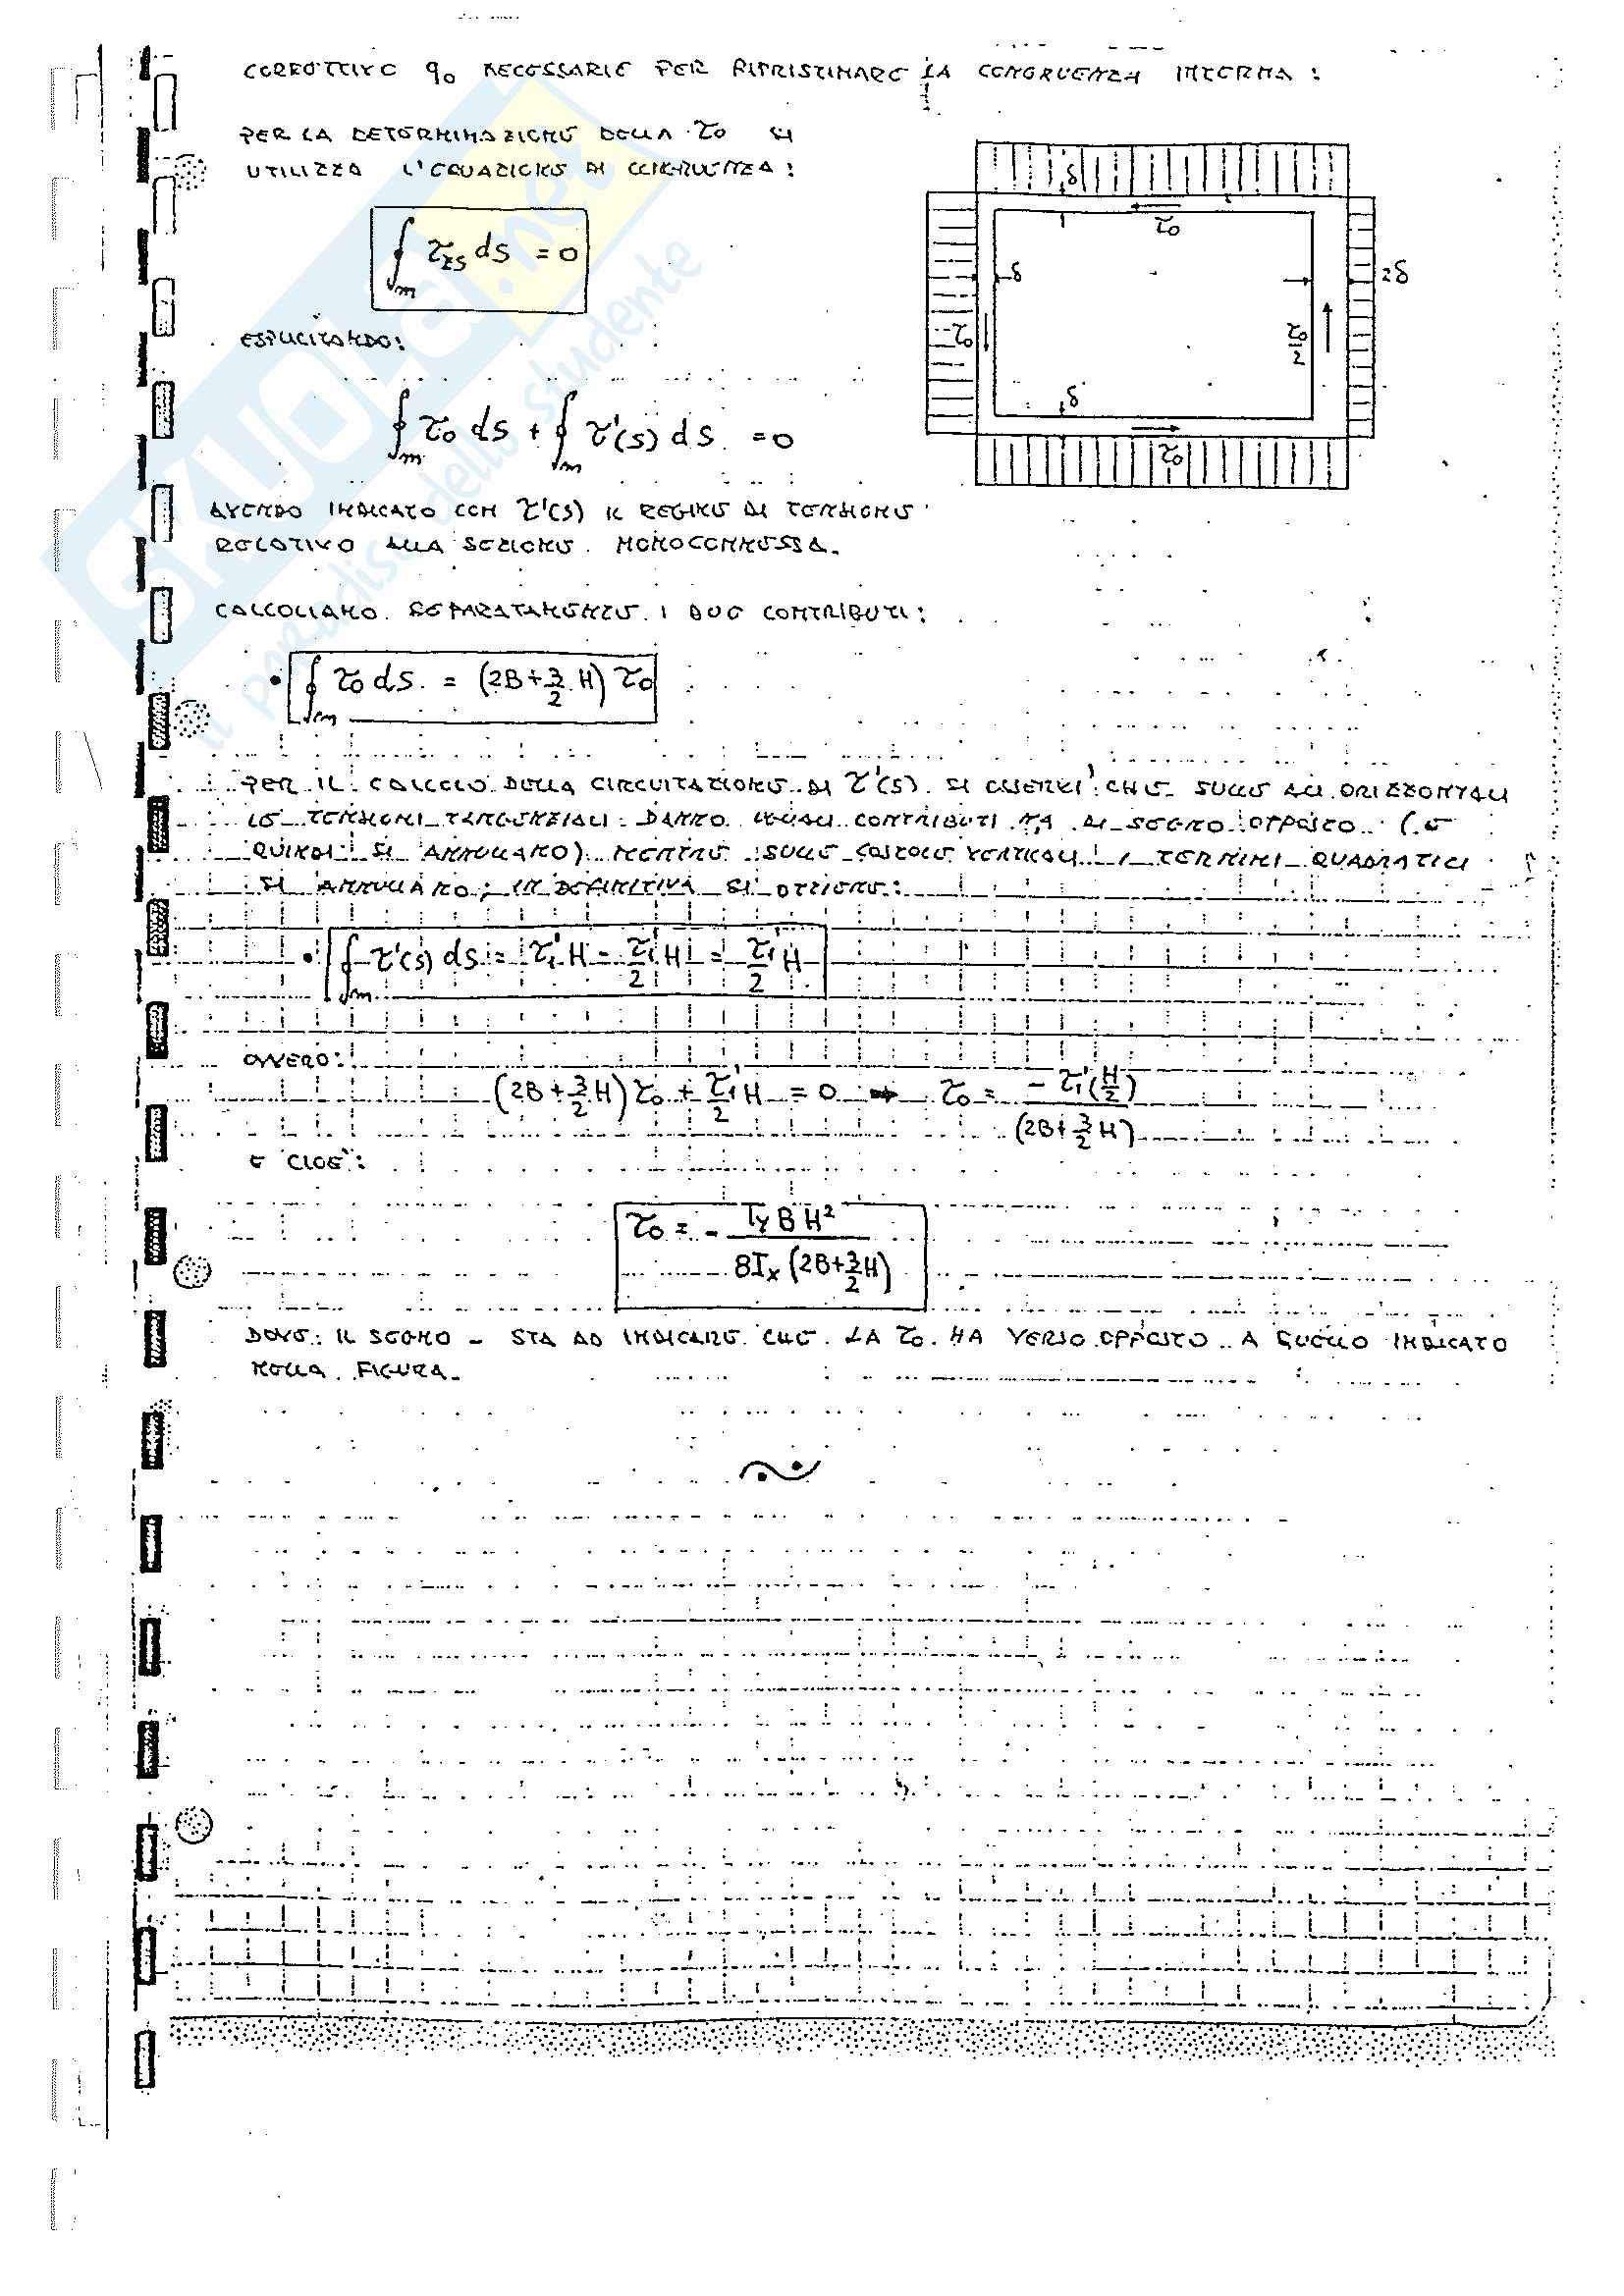 CORRETTIVO q₀ NECESSARIE PER RIPRISTINARE LA CONGRUENZA INTERNA:
PER LA DETERMINAZIONE DELLA τ₀ SI
UTILIZZA L'EQUAZIONE DI CONGRUENZA:
∮ₘ τzs ds = 0
ESPLICITANDO:
∮ₘ τ₀ ds + ∮ₘ τ'(s) ds = 0
AVENDO INDICATO CON τ'(s) IL REGIME DI TENSIONE
RELATIVO ALLA SEZIONE MONOCONNESSA.
CALCOLIAMO SEPARATAMENTE I DUE CONTRIBUTI:
• ∮ₘ τ₀ ds = (2B + 3/2 H) τ₀
PER IL CALCOLO DELLA CIRCUITAZIONE DI τ'(s) SI OSSERVI CHE SULLE ALI ORIZZONTALI
LE TENSIONI TANGENZIALI DANNO UGUALI CONTRIBUTI MA DI SEGNO OPPOSTO (E
QUINDI SI ANNULLANO) MENTRE SULLE COSTOLE VERTICALI I TERMINI QUADRATICI
SI ANNULLANO; IN DEFINITIVA SI OTTIENE:
• ∮ₘ τ'(s) ds = τ₁' H - τ₁'/2 H = τ₁'/2 H
OVVERO:
(2B + 3/2 H) τ₀ + τ₁'/2 H = 0 ➡ τ₀ = -τ₁'(H/2) / (2B + 3/2 H)
E CIOE':
τ₀ = - Ty B H² / 8Ix (2B + 3/2 H)
DOVE IL SEGNO - STA AD INDICARE CHE LA τ₀ HA VERSO OPPOSTO A QUELLO INDICATO
NELLA FIGURA.
δ
τ₀
δ
2δ
τ₀
τ₀/2
δ
τ₀
SKUOLA.net
il paradiso dello studente